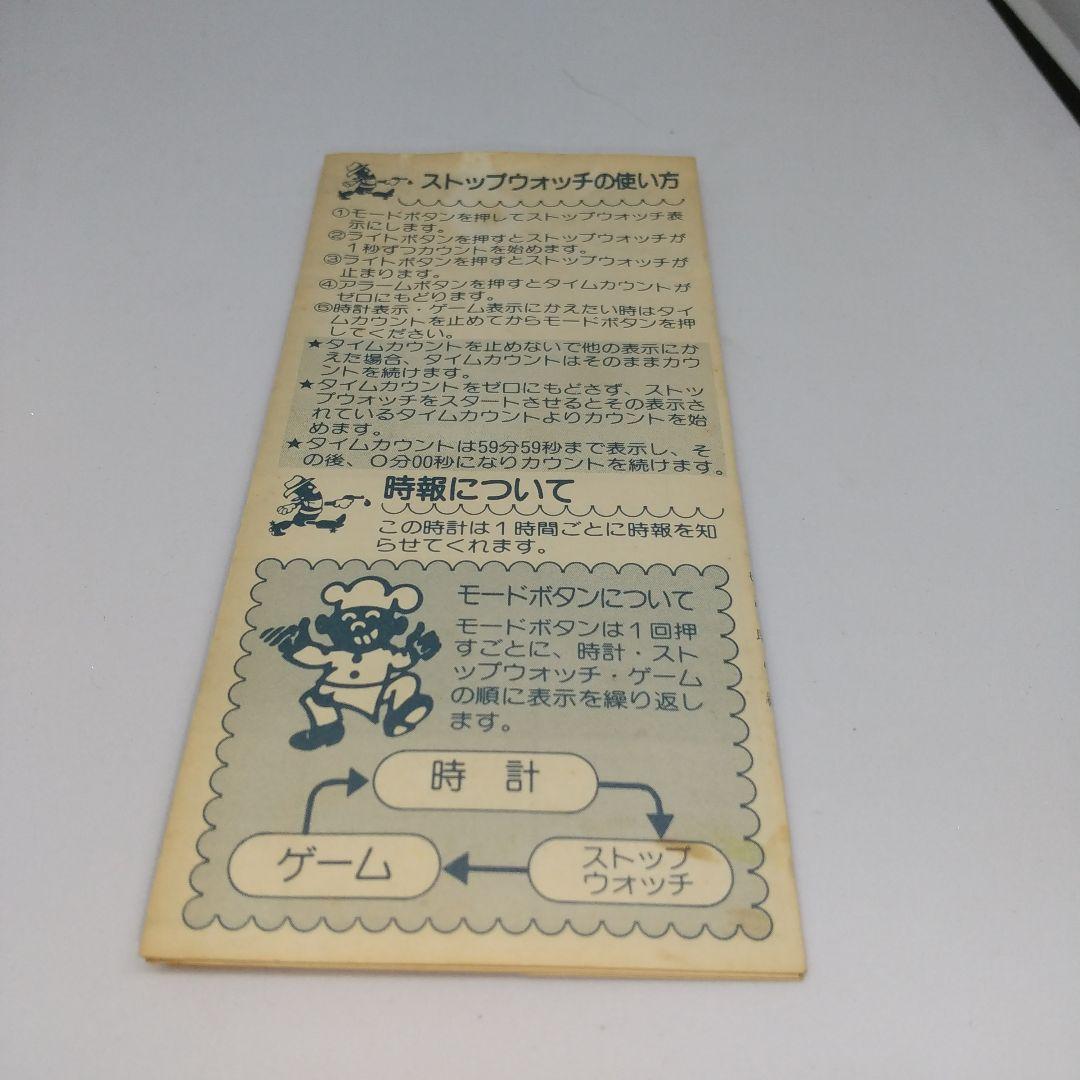 ストップウォッチの使い方
①モードボタンを押してストップウォッチ表
示にします。
②ライトボタンを押すとストップウォッチが
1秒ずつカウントを始めます。
③ライトボタンを押すとストップウォッチが
止まります。
④アラームボタンを押すとタイムカウントが
ゼロにもどります。
⑤時計表示・ゲーム表示にかえたい時はタイ
ムカウントを止めてからモードボタンを押
してください。
★タイムカウントを止めないで他の表示にか
えた場合、タイムカウントはそのままカウ
ントを続けます。
★タイムカウントをゼロにもどさず、ストッ
プウォッチをスタートさせるとその表示さ
れているタイムカウントよりカウントを始
めます。
★タイムカウントは59分59秒まで表示し、そ
の後、0分00秒になりカウントを続けます。
時報について
この時計は1時間ごとに時報を知
らせてくれます。
モードボタンについて
モードボタンは1回押
すごとに、時計・スト
ップウォッチ・ゲーム
の順に表示を繰り返し
ます。
時計
ゲーム
ストップ
ウォッチ